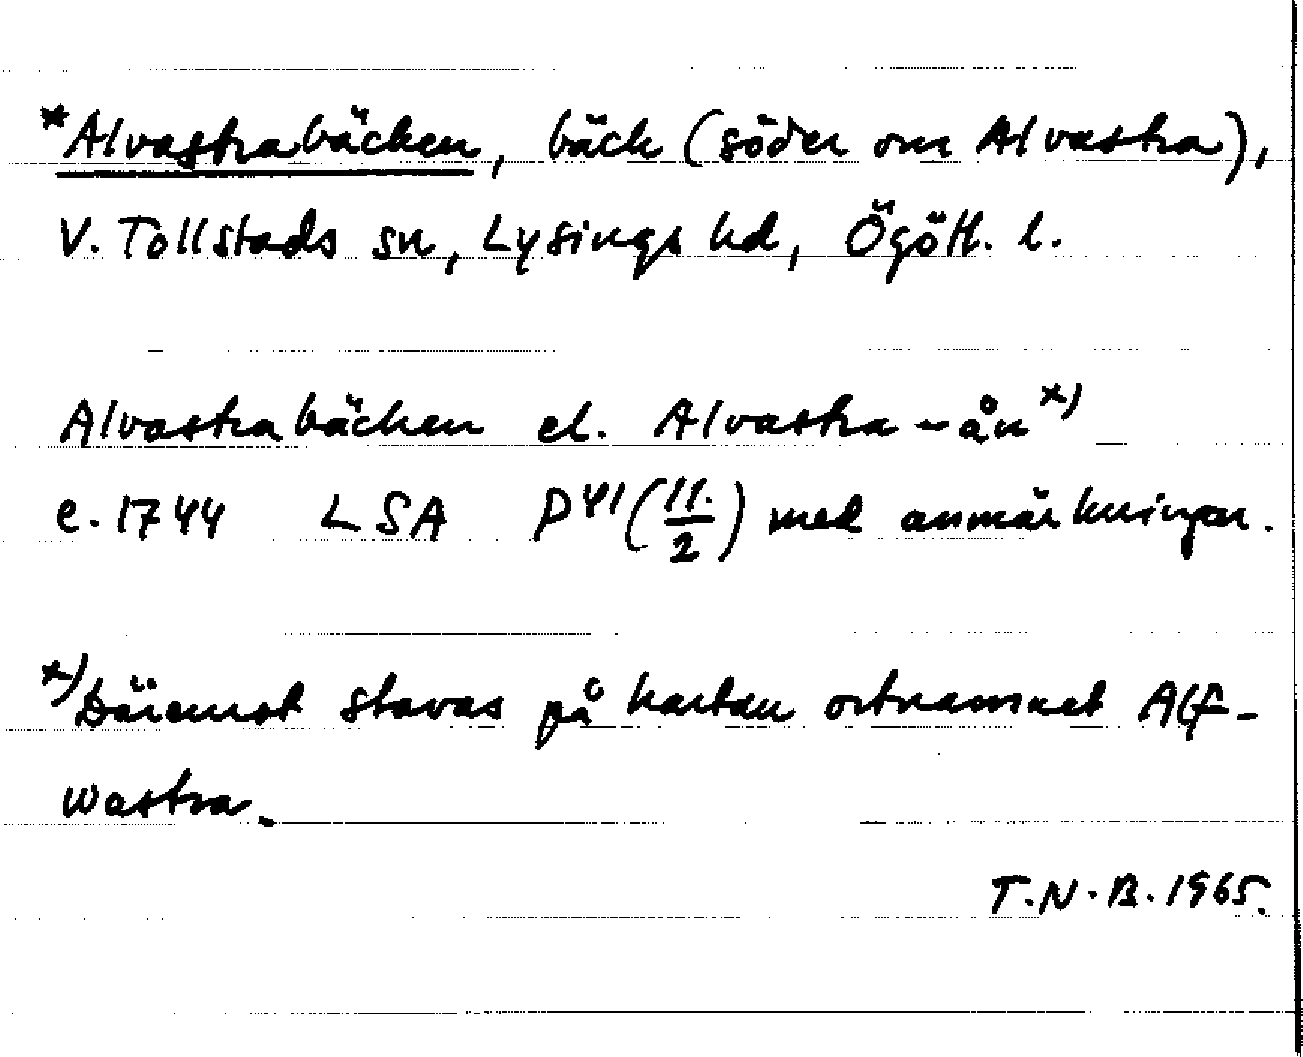 *Alvastrabäcken, bäck (söder om Alvastra),
V. Tollstads sn, Lysings hd, Ögötl. l.
Alvastrabäcken el. Alvastra-ån x)
c. 1744 LSA P 41 (11./2) med anmärkningar.
x) Däremot stavas på kartan ortnamnet Alf-
wastra.
T.N.B. 1965.